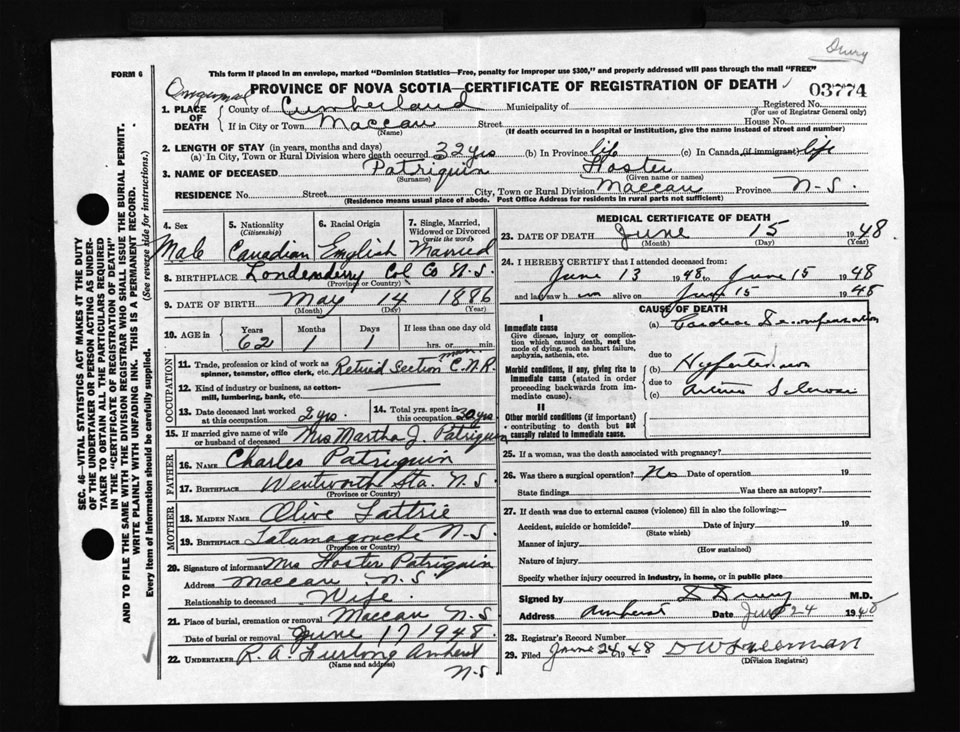 Drury
FORM 6
This form if placed in an envelope, marked "Dominion Statistics—Free, penalty for improper use $300," and properly addressed will pass through the mail "FREE"
PROVINCE OF NOVA SCOTIA—CERTIFICATE OF REGISTRATION OF DEATH
03774
1. PLACE OF DEATH
County of Cumberland Municipality of Registered No.
(For use of Registrar General only)
If in City or Town Maccan Street House No.
(Name) (If death occurred in a hospital or institution, give the name instead of street and number)
2. LENGTH OF STAY (in years, months and days)
(a) In City, Town or Rural Division where death occurred 32 yrs (b) In Province life (c) In Canada (if immigrant) life
3. NAME OF DECEASED Patriquin Hoster
(Surname) (Given name or names)
RESIDENCE No. Street City, Town or Rural Division Maccan Province N-S.
(Residence means usual place of abode. Post Office Address for residents in rural parts not sufficient)
4. Sex 5. Nationality 6. Racial Origin 7. Single, Married, Widowed or Divorced
(Citizenship) (write the word)
Male Canadian English Married
8. BIRTHPLACE Londonderry Col Co N.S.
(Province or Country)
9. DATE OF BIRTH May 14 1886
(Month) (Day) (Year)
10. AGE in Years Months Days If less than one day old
62 1 1 hrs. or min.
OCCUPATION
11. Trade, profession or kind of work as spinner, teamster, office clerk, etc. Retired Section man C.N.R.
12. Kind of industry or business, as cotton-mill, lumbering, bank, etc.
13. Date deceased last worked at this occupation 2 yrs. 14. Total yrs. spent in this occupation 20 yrs.
15. If married give name of wife or husband of deceased Mrs Martha J. Patriquin
FATHER
16. NAME Charles Patriquin
17. BIRTHPLACE Wentworth Sta. N.S.
(Province or Country)
MOTHER
18. MAIDEN NAME Olive Tattrie
19. BIRTHPLACE Tatamagouche N-S.
(Province or Country)
20. Signature of informant Mrs Hoster Patriquin
Address Maccan N.S.
Relationship to deceased Wife
21. Place of burial, cremation or removal Maccan N.S
Date of burial or removal June 17 1948.
22. UNDERTAKER R. A. Furlong Amherst
(Name and address)
N-S
MEDICAL CERTIFICATE OF DEATH
23. DATE OF DEATH June 15 1948
(Month) (Day) (Year)
24. I HEREBY CERTIFY that I attended deceased from:
June 13 1948 to June 15 1948
and last saw h im alive on June 15 1948
CAUSE OF DEATH
I
Immediate cause
Give disease, injury or complication which caused death, not the mode of dying, such as heart failure, asphyxia, asthenia, etc.
(a) Cardiac Decompensation
due to
Morbid conditions, if any, giving rise to immediate cause (stated in order proceeding backwards from immediate cause).
(b) Hypertension
due to
(c)
II
Other morbid conditions (if important) contributing to death but not causally related to immediate cause.
25. If a woman, was the death associated with pregnancy?
26. Was there a surgical operation? No Date of operation 19
State findings Was there an autopsy?
27. If death was due to external causes (violence) fill in also the following:—
Accident, suicide or homicide? Date of injury 19
(State which)
Manner of injury
(How sustained)
Nature of injury
Specify whether injury occurred in industry, in home, or in public place
Signed by D Drury M.D.
Address Amherst Date June 24 1948
28. Registrar's Record Number
29. Filed June 24 1948
(Division Registrar)
SEC. 46—VITAL STATISTICS ACT MAKES IT THE DUTY
OF THE UNDERTAKER OR PERSON ACTING AS UNDER-
TAKER TO OBTAIN ALL THE PARTICULARS REQUIRED
IN THE "CERTIFICATE OF REGISTRATION OF DEATH"
AND TO FILE THE SAME WITH THE DIVISION REGISTRAR WHO SHALL ISSUE THE BURIAL PERMIT.
WRITE PLAINLY WITH UNFADING INK. THIS IS A PERMANENT RECORD.
Every item of Information should be carefully supplied. (See reverse side for instructions.)